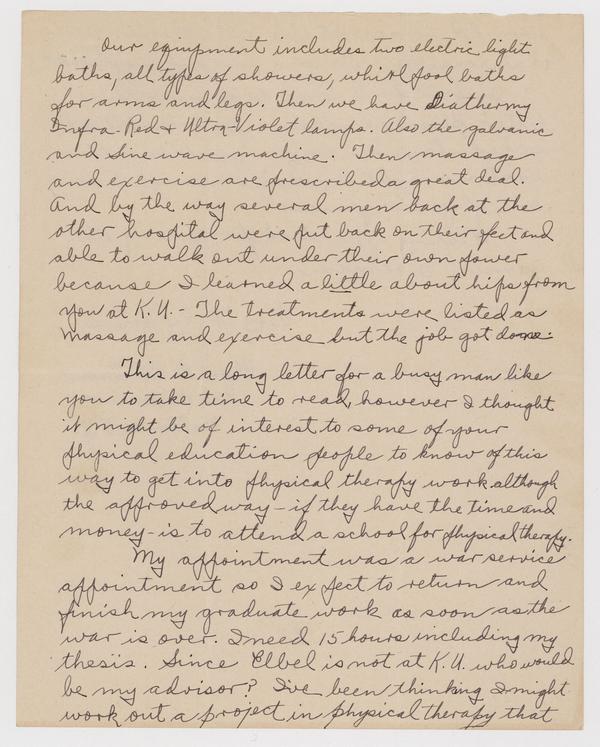 Our equipment includes two electric light
baths, all types of showers, whirlpool baths
for arms and legs. Then we have Diathermy
Infra-Red & Ultra-Violet lamps. Also the galvanic
and sine wave machine. Then massage
and exercise are prescribed a great deal.
And by the way several men back at the
other hospital were put back on their feet and
able to walk out under their own power
because I learned a little about hips from
you at K.U. - The treatments were listed as
massage and exercise but the job got done.
This is a long letter for a busy man like
you to take time to read, however I thought
it might be of interest to some of your
physical education people to know of this
way to get into physical therapy work although
the approved way - if they have the time and
money - is to attend a school for physical therapy.
My appointment was a war service
appointment so I expect to return and
finish my graduate work as soon as the
war is over. I need 15 hours including my
thesis. Since Elbel is not at K.U. who would
be my advisor? I've been thinking I might
work out a project in physical therapy that